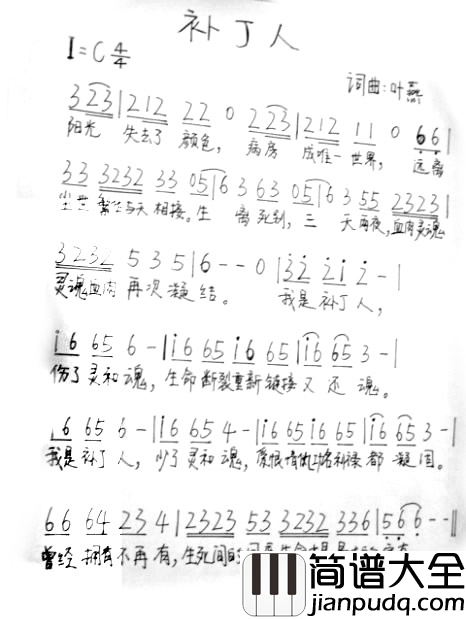 补丁人
1=C 4/4
词曲:叶燕
3 23|212 22 0 223|212 11 0 66|
阳光 失去了 颜色, 病房 成唯一 世界, 远离
33 3232 33 05|6 3 63 05|6 3 55 2323|
尘世 与天相接。生 离死别, 三 天两夜,血肉灵魂
3232 5 3 5|6 - - 0|32 21 2 -|
灵魂血肉 再次凝结。 我是补丁人,
i6 65 6 -|i6 65 i6 65|i6 65 3 -|
伤了灵和魂, 生命断裂重新链接又还魂。
i6 65 6 -|i6 65 4 -|i6 65 i6 65|i6 65 3 -|
我是补丁人, 少了灵和魂, 爱恨情 都凝固。
66 64 23 4|2323 53 3232 336|5 66 - -||
曾经拥有不再有,生死间的
简谱大全
www.jianpudq.com